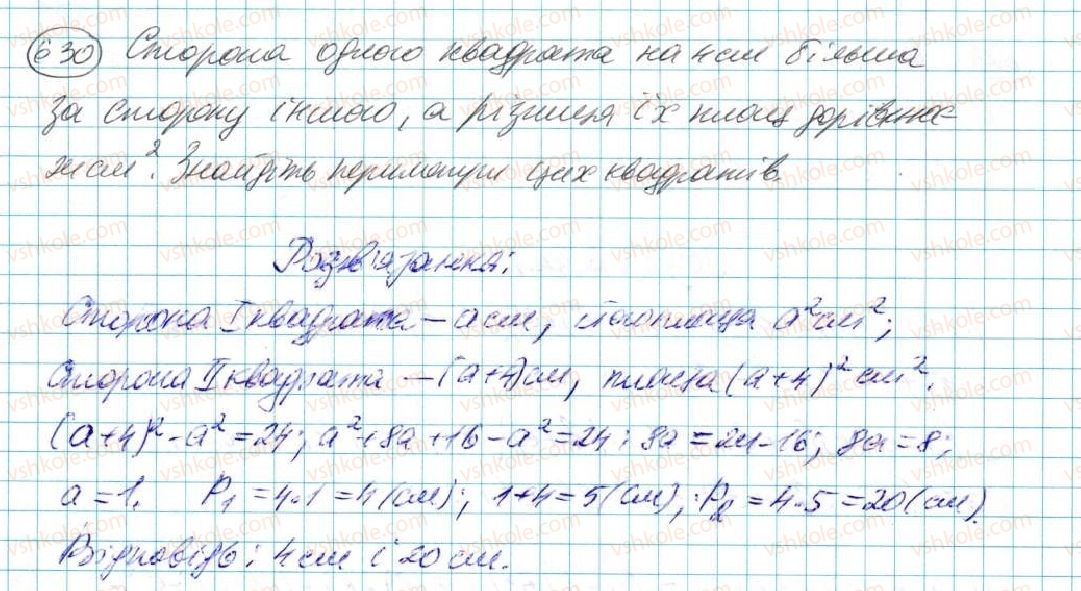 630 Сторона одного квадрата на 4 см більша
за сторону іншого, а різниця їх площ дорівнює
24 см². Знайдіть периметри цих квадратів.
Розв'язання:
Сторона I квадрата – a см, його площа a² см²;
Сторона II квадрата – (a+4) см, площа (a+4)² см².
(a+4)² - a² = 24; a² + 8a + 16 - a² = 24; 8a = 24-16; 8a = 8;
a = 1. P₁ = 4·1 = 4 (см); 1+4 = 5 (см); P₂ = 4·5 = 20 (см).
Відповідь: 4 см і 20 см.